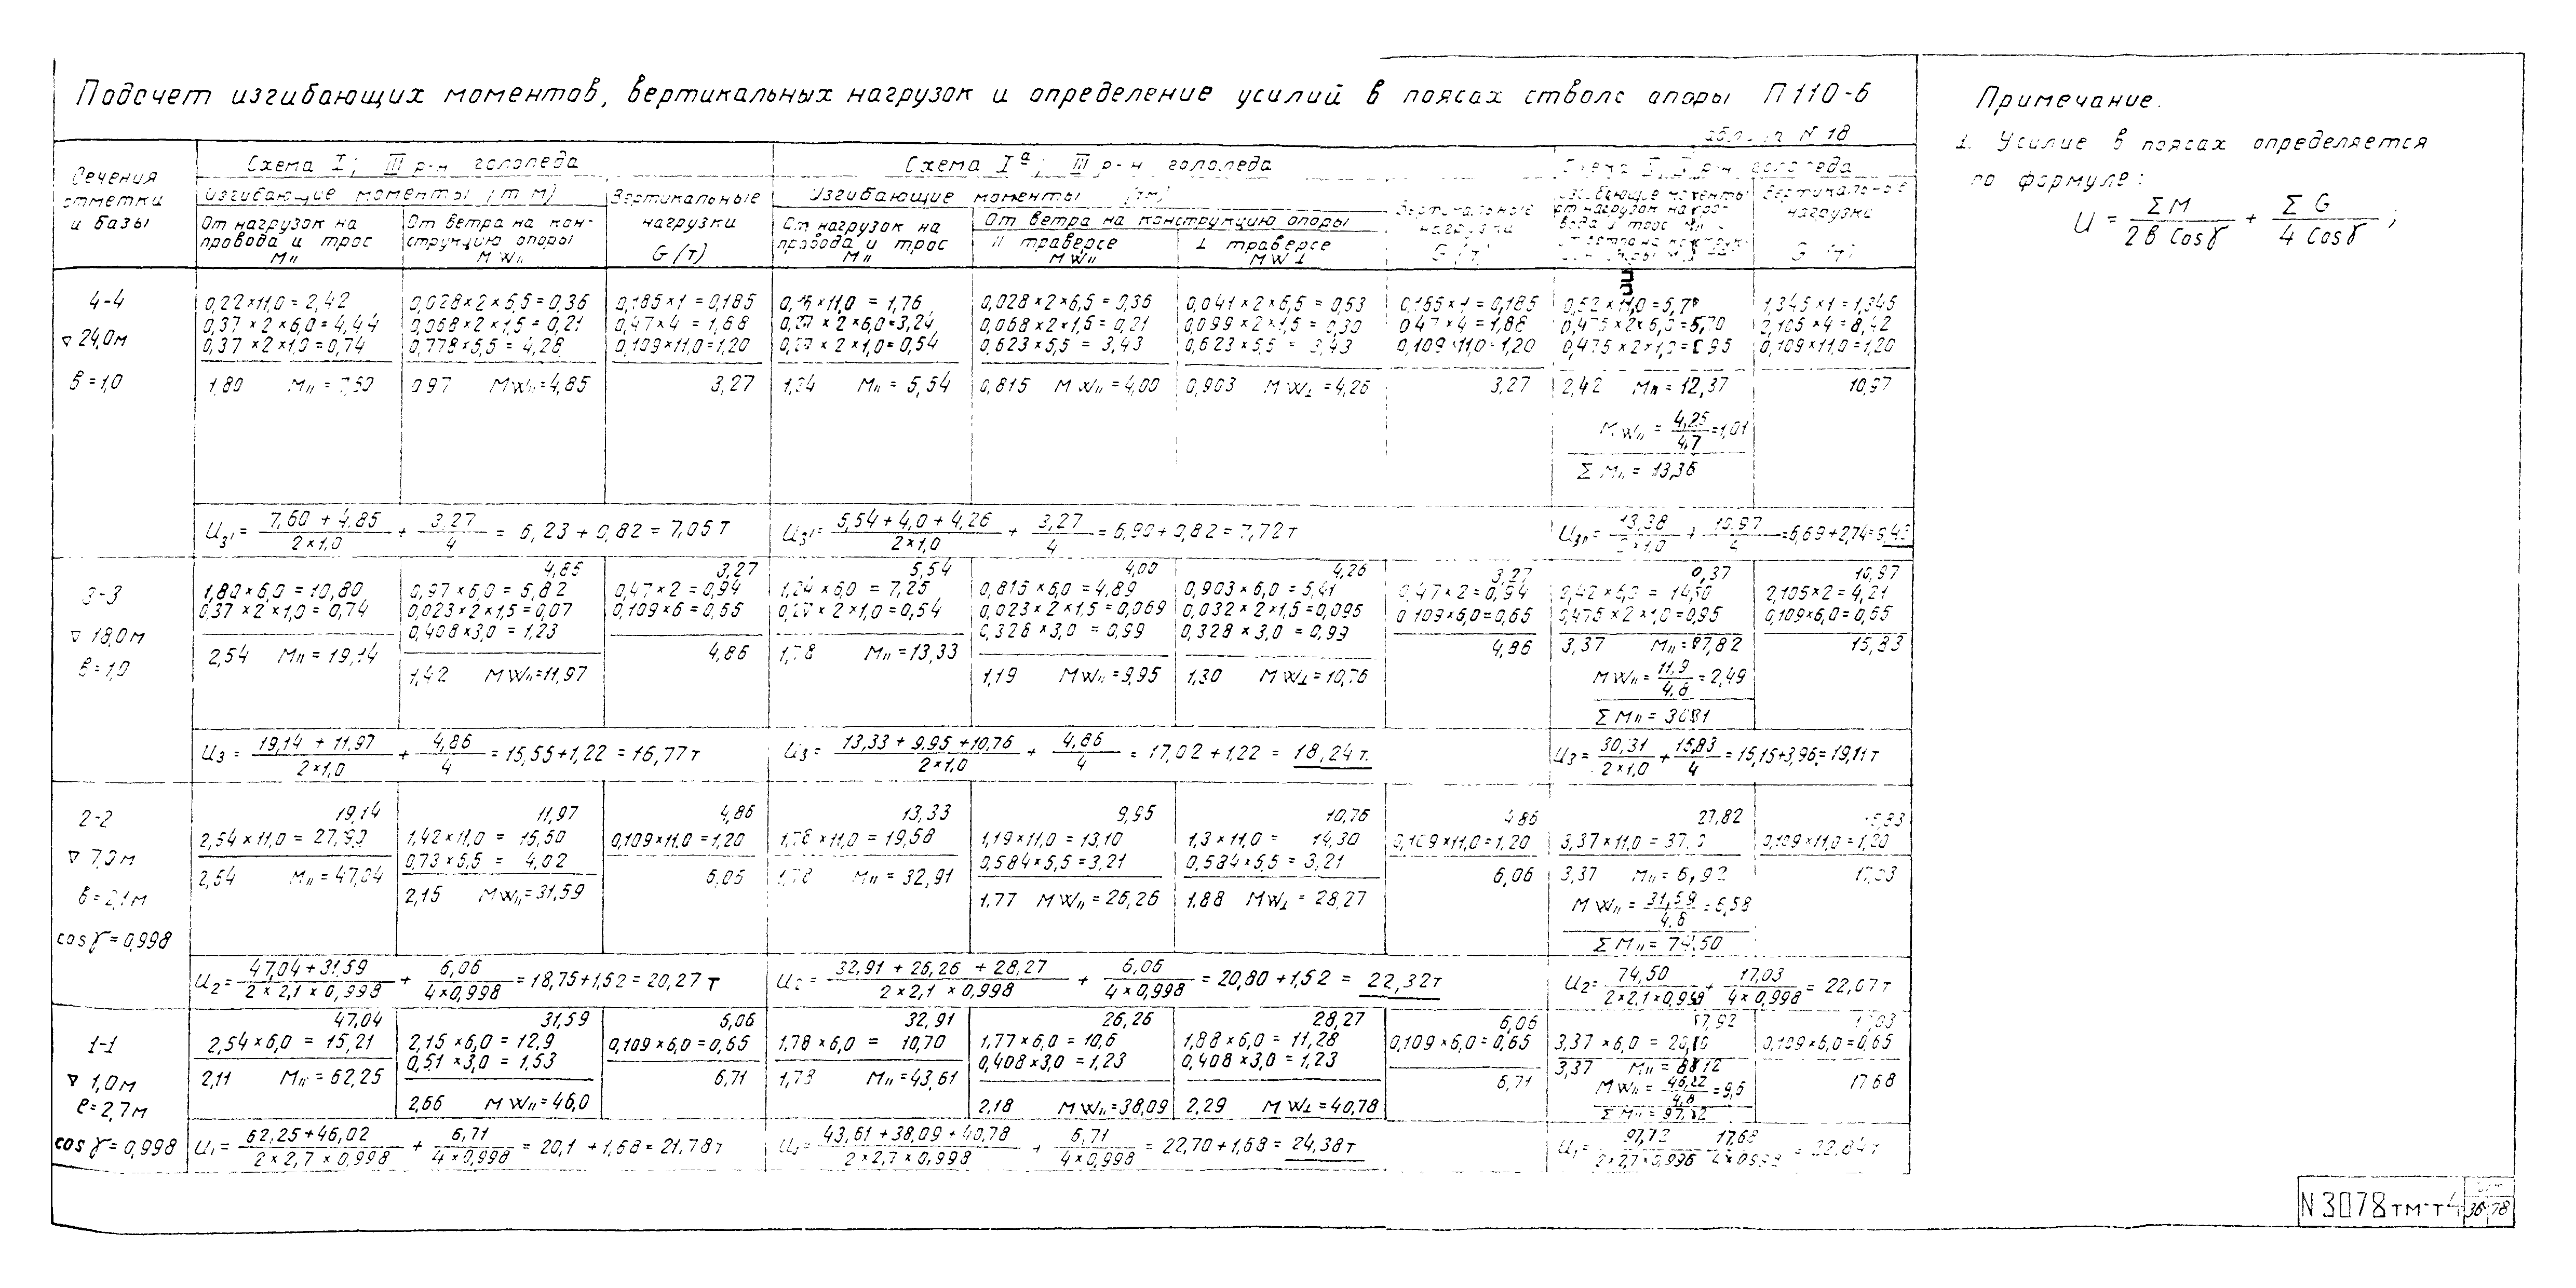 Подсчет изгибающих моментов, вертикальных нагрузок и определение усилий в поясах ствола опоры П110-6
N 18
Сечения отметки и базы
Схема I; III р-н гололеда
Изгибающие моменты (т м)
От нагрузок на провода и трос M॥
От ветра на конструкцию опоры MW॥
Вертикальные нагрузки G (т)
Схема Iª; III р-н гололеда
Изгибающие моменты (тм)
От нагрузок на провода и трос M॥
От ветра на конструкцию опоры
॥ траверсе MW॥
⊥ траверсе MW⊥
Вертикальные нагрузки G (т)
р-н гололеда
Вертикальные нагрузки G (т)
4-4
▽ 24,0м
в=1,0
0,22×11,0=2,42
0,37×2×6,0=4,44
0,37×2×1,0=0,74
1,80 M॥=
0,028×2×6,5=0,36
0,068×2×1,5=0,21
0,778×5,5=4,28
0,97 MW॥=4,85
0,185×1=0,185
0,47×4=1,88
0,109×11,0=1,20
3,27
0,16×11,0=1,76
0,27×2×6,0=3,24
0,27×2×1,0=0,54
1,24 M॥=5,54
0,028×2×6,5=0,36
0,068×2×1,5=0,21
0,623×5,5=3,43
0,815 MW॥=4,00
0,041×2×6,5=0,53
0,099×2×1,5=0,30
0,623×5,5=3,43
0,903 MW⊥=4,26
0,185×1=0,185
0,47×4=1,88
0,109×11,0=1,20
3,27
0,52×11,0=5,7
0,475×2×6,0=5,70
0,475×2×1,0=0,95
2,42 M॥=12,37
MW॥=4,25/4,7=1,01
ΣM॥=13,38
1,345×1=1,345
2,105×4=8,42
0,109×11,0=1,20
10,97
U₃'=(7,60+4,85)/(2×1,0)+3,27/4=6,23+0,82=7,05т
U₃'=(5,54+4,0+4,26)/(2×1,0)+3,27/4=6,90+0,82=7,72т
13,38/(2×1,0)+10,97/4=6,69+2,74=9,43
3-3
▽ 18,0м
в=1,0
4,85
3,27
5,54
4,00
4,26
3,27
10,97
1,80×6,0=10,80
0,37×2×1,0=0,74
2,54 M॥=19,14
0,97×6,0=5,82
0,023×2×1,5=0,07
0,408×3,0=1,23
1,42 MW॥=11,97
0,47×2=0,94
0,109×6=0,65
4,86
1,24×6,0=7,25
0,27×2×1,0=0,54
1,78 M॥=13,33
0,815×6,0=4,89
0,023×2×1,5=0,069
0,328×3,0=0,99
1,19 MW॥=9,95
0,903×6,0=5,41
0,032×2×1,5=0,095
0,328×3,0=0,99
1,30 MW⊥=10,76
0,47×2=0,94
0,109×6,0=0,65
4,86
2,42×6,0=14,50
0,475×2×1,0=0,95
3,37 M॥=27,82
MW॥=11,9/4,8=2,49
ΣM॥=30,31
2,105×2=4,21
0,109×6,0=0,65
15,83
U₃=(19,14+11,97)/(2×1,0)+4,86/4=15,55+1,22=16,77т
U₃=(13,33+9,95+10,76)/(2×1,0)+4,86/4=17,02+1,22=18,24т.
U₃=30,31/(2×1,0)+15,83/4=15,15+3,96=19,11т
2-2
▽ 7,0м
в=2,1м
cosγ=0,998
19,14
2,54×11,0=27,90
2,54 M॥=47,04
11,97
1,42×11,0=15,60
0,73×5,5=4,02
2,15 MW॥=31,59
4,86
0,109×11,0=1,20
6,06
13,33
1,78×11,0=19,58
1,78 M॥=32,91
9,95
1,19×11,0=13,10
0,584×5,5=3,21
1,77 MW॥=26,26
10,76
1,3×11,0=14,30
0,584×5,5=3,21
1,88 MW⊥=28,27
4,86
0,109×11,0=1,20
6,06
27,82
3,37×11,0=
3,37 M॥=
MW॥=31,59/4,8=6,58
ΣM॥=74,50
15,83
0,109×11,0=1,20
17,03
U₂=(47,04+31,59)/(2×2,1×0,998)+6,06/(4×0,998)=18,75+1,52=20,27т
U₂=(32,91+26,26+28,27)/(2×2,1×0,998)+6,06/(4×0,998)=20,80+1,52=22,32т
U₂=74,50/(2×2,1×0,998)+17,03/(4×0,998)=22,07т
1-1
▽ 1,0м
в=2,7м
cosγ=0,998
47,04
2,54×6,0=15,21
2,11 M॥=62,25
31,59
2,15×6,0=12,9
0,51×3,0=1,53
2,66 MW॥=46,0
6,06
0,109×6,0=0,65
6,71
32,91
1,78×6,0=10,70
1,78 M॥=43,61
26,26
1,77×6,0=10,6
0,408×3,0=1,23
2,18 MW॥=38,09
28,27
1,88×6,0=11,28
0,408×3,0=1,23
2,29 MW⊥=40,78
6,06
0,109×6,0=0,65
6,71
3,37×6,0=
3,37 M॥=
ΣM॥=
17,03
0,109×6,0=0,65
17,68
U₁=(62,25+46,02)/(2×2,7×0,998)+6,71/(4×0,998)=20,1+1,68=21,78т
U₁=(43,61+38,09+40,78)/(2×2,7×0,998)+6,71/(4×0,998)=22,70+1,68=24,38т
U₁=97,72/(2×2,7×0,998) 17,68/(4×0,998)=22,84т
Примечание.
1. Усилие в поясах определяется
по формуле:
U=ΣM/(2в Cosγ)+ΣG/(4 Cosγ);
N 3078тм-т4 36 78